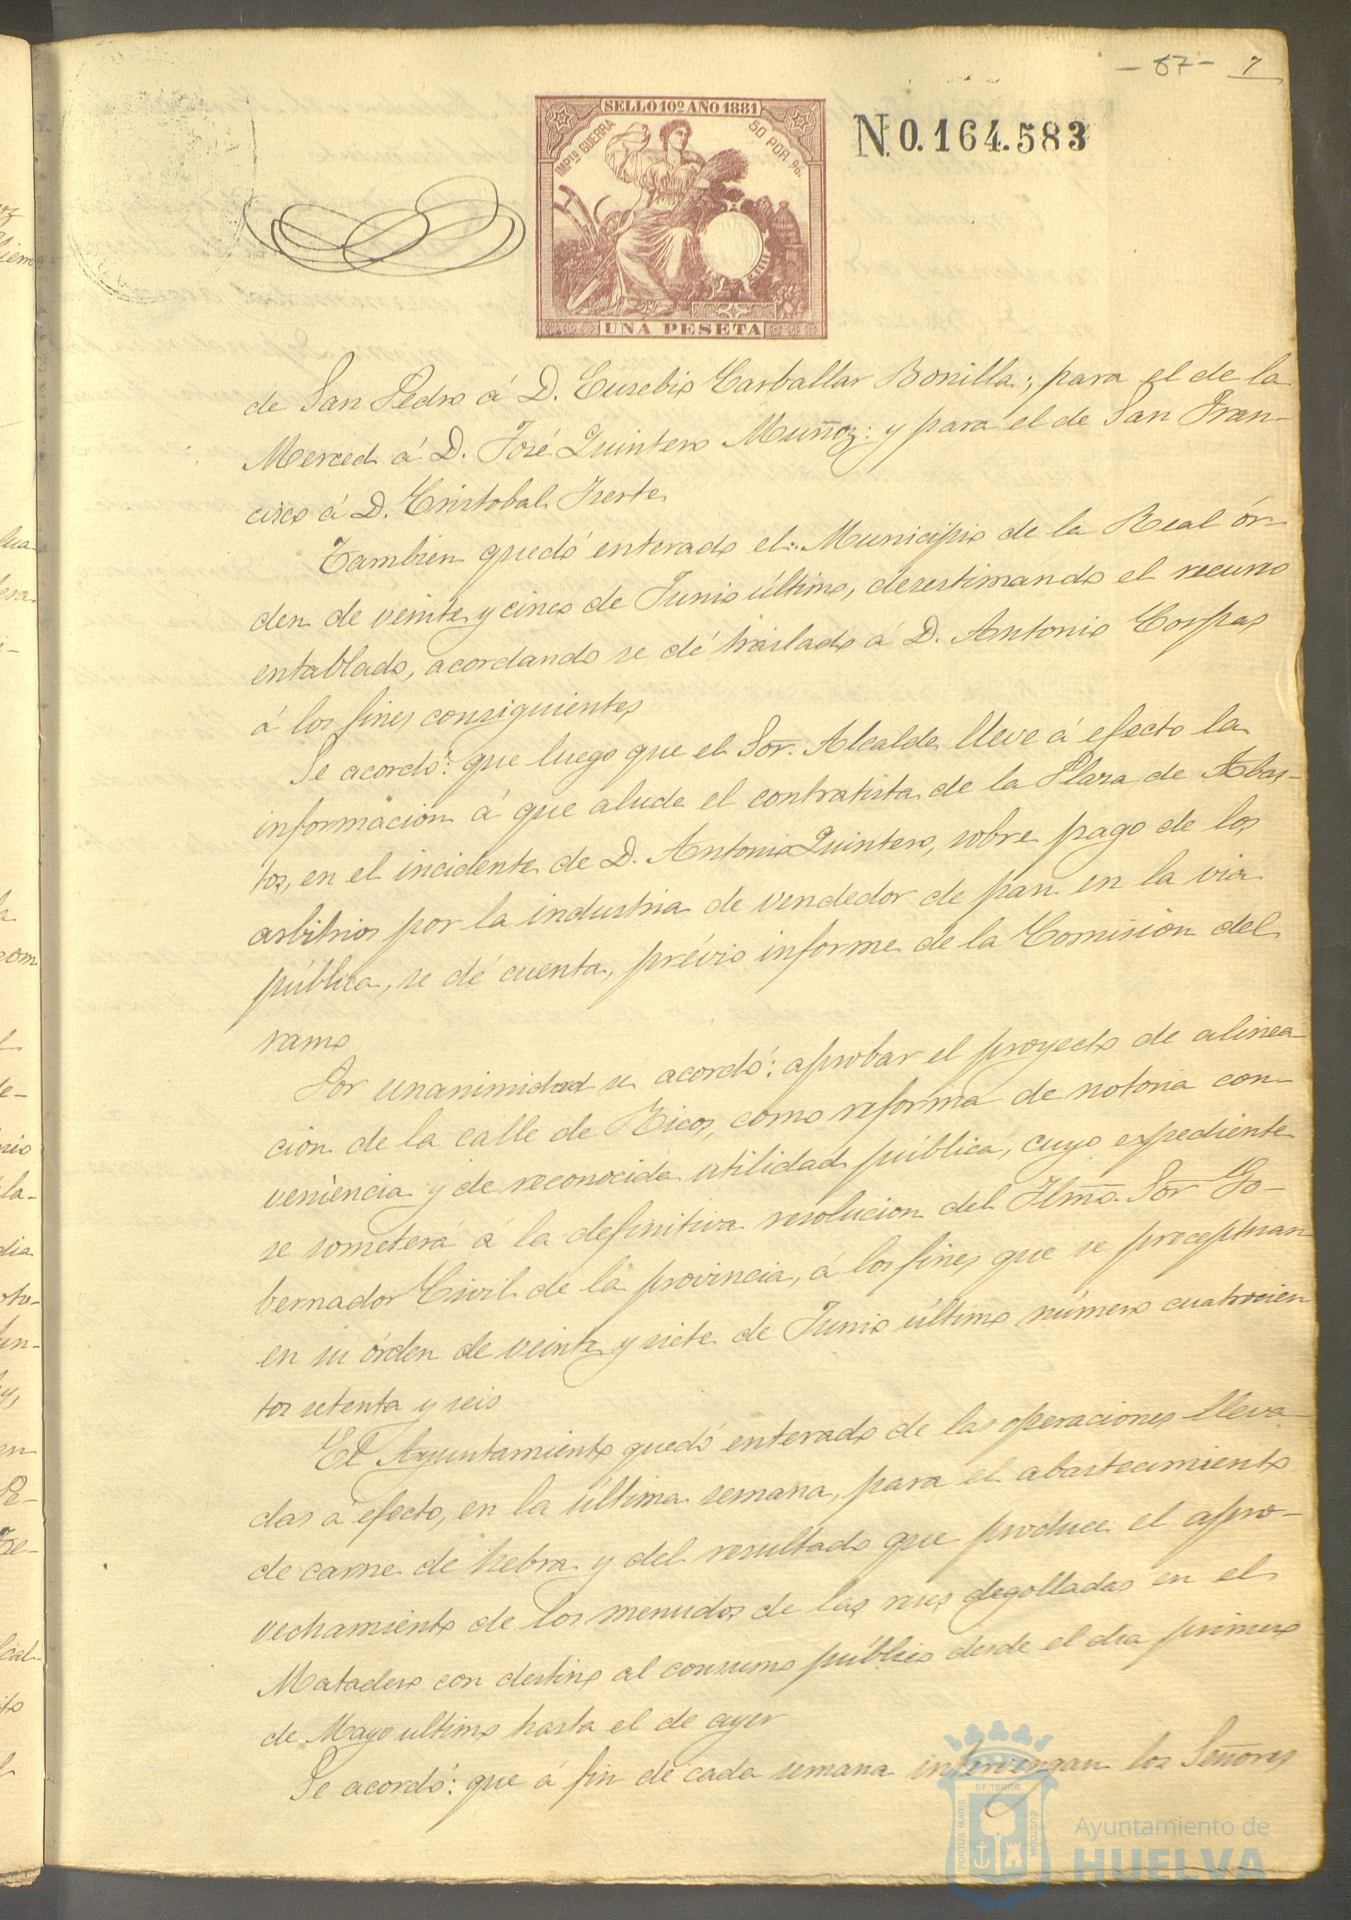 - 67 - 7
SELLO 10º AÑO 1881
IMPtº GUERRA 50 POR %
N 0.164.583
UNA PESETA
de San Pedro á D. Eusebio Carballar Bonilla; para el de la
Merced á D. José Quintero Muñoz: y para el de San Fran-
cisco á D. Cristobal
Tambien quedó enterado el Municipio de la Real ór-
den de veinte y cinco de Junio último, desestimando el recurso
entablado, acordando se dé traslado á D. Antonio Corpas
á los fines consiguientes
Se acordó: que luego que el Sor. Alcalde lleve á efecto la
información á que alude el contratista de la Plaza de Abas-
tos, en el incidente de D. Antonio Quintero, sobre pago de los
arbitrios por la industria de vendedor de pan en la via
pública, se dé cuenta, prévio informe de la Comisión del
ramo
Por unanimidad se acordó: aprobar el proyecto de alinea
ción de la calle de Ricos, como reforma de notoria con-
veniencia y de reconocida utilidad pública, cuyo expediente
se someterá á la definitiva resolucion del Ilmo. Sor Go-
bernador Civil de la provincia, á los fines que se preceptuan
en su órden de veinte y siete de Junio último número cuatrocien
tos setenta y seis
El Ayuntamiento quedó enterado de las operaciones lleva
das á efecto, en la última semana, para el abastecimiento
de carne de hebra y del resultado que produce el apro-
vechamiento de los menudos de las reses degolladas en el
Matadero con destino al consumo público desde el dia primero
de Mayo ultimo hasta el de ayer
Se acordó: que á fin de cada semana intervengan los Señores
PORTUS MARIS ET TERRÆ CUSTODIA
Ayuntamiento de
HUELVA